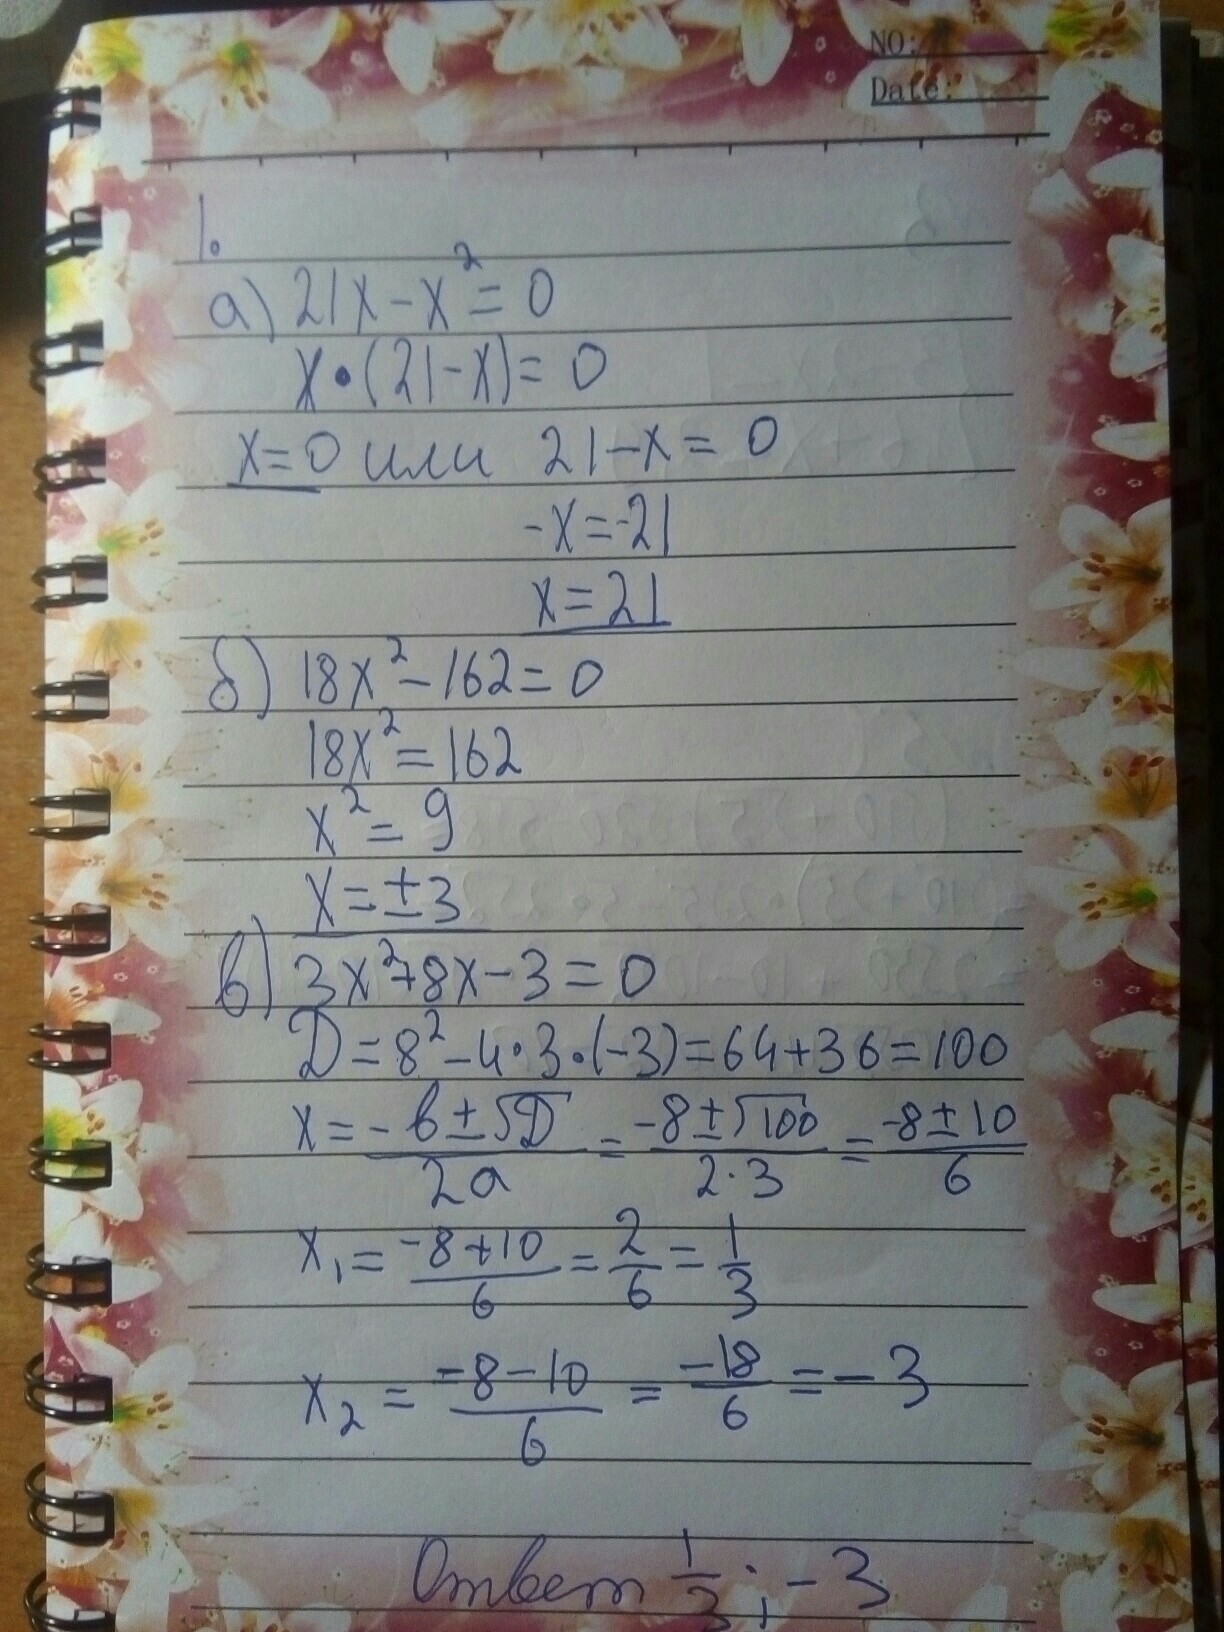 NO:
Date:
1.
а) 21x - x² = 0
x • (21 - x) = 0
x = 0 или 21 - x = 0
-x = -21
x = 21
б) 18x² - 162 = 0
18x² = 162
x² = 9
x = ±3
в) 3x² + 8x - 3 = 0
D = 8² - 4·3·(-3) = 64 + 36 = 100
x = (-b ± √D)/(2a) = (-8 ± √100)/(2·3) = (-8 ± 10)/6
x₁ = (-8 + 10)/6 = 2/6 = 1/3
x₂ = (-8 - 10)/6 = -18/6 = -3
Ответ 1/3 ; -3